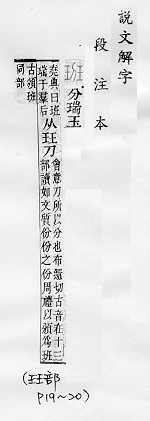 說文解字
段注本
班 分瑞玉
堯典曰班
瑞于羣后
从玨刀
會意刀所以分也布還切古音在十三
部讀如文質份份之份周禮以頒爲班
古頒班
同部
(玨部
P19~20)